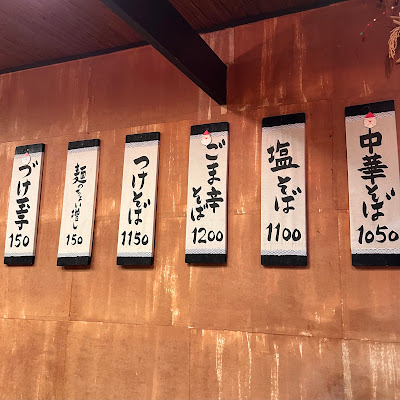 中華そば
1050
塩そば
1100
ごま辛
そば
1200
つけそば
1150
麺のちょい増し
150
づけ玉子
150